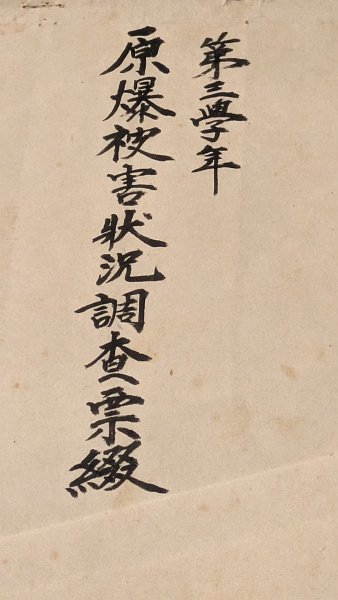 第三學年
原爆被害狀況調查票綴